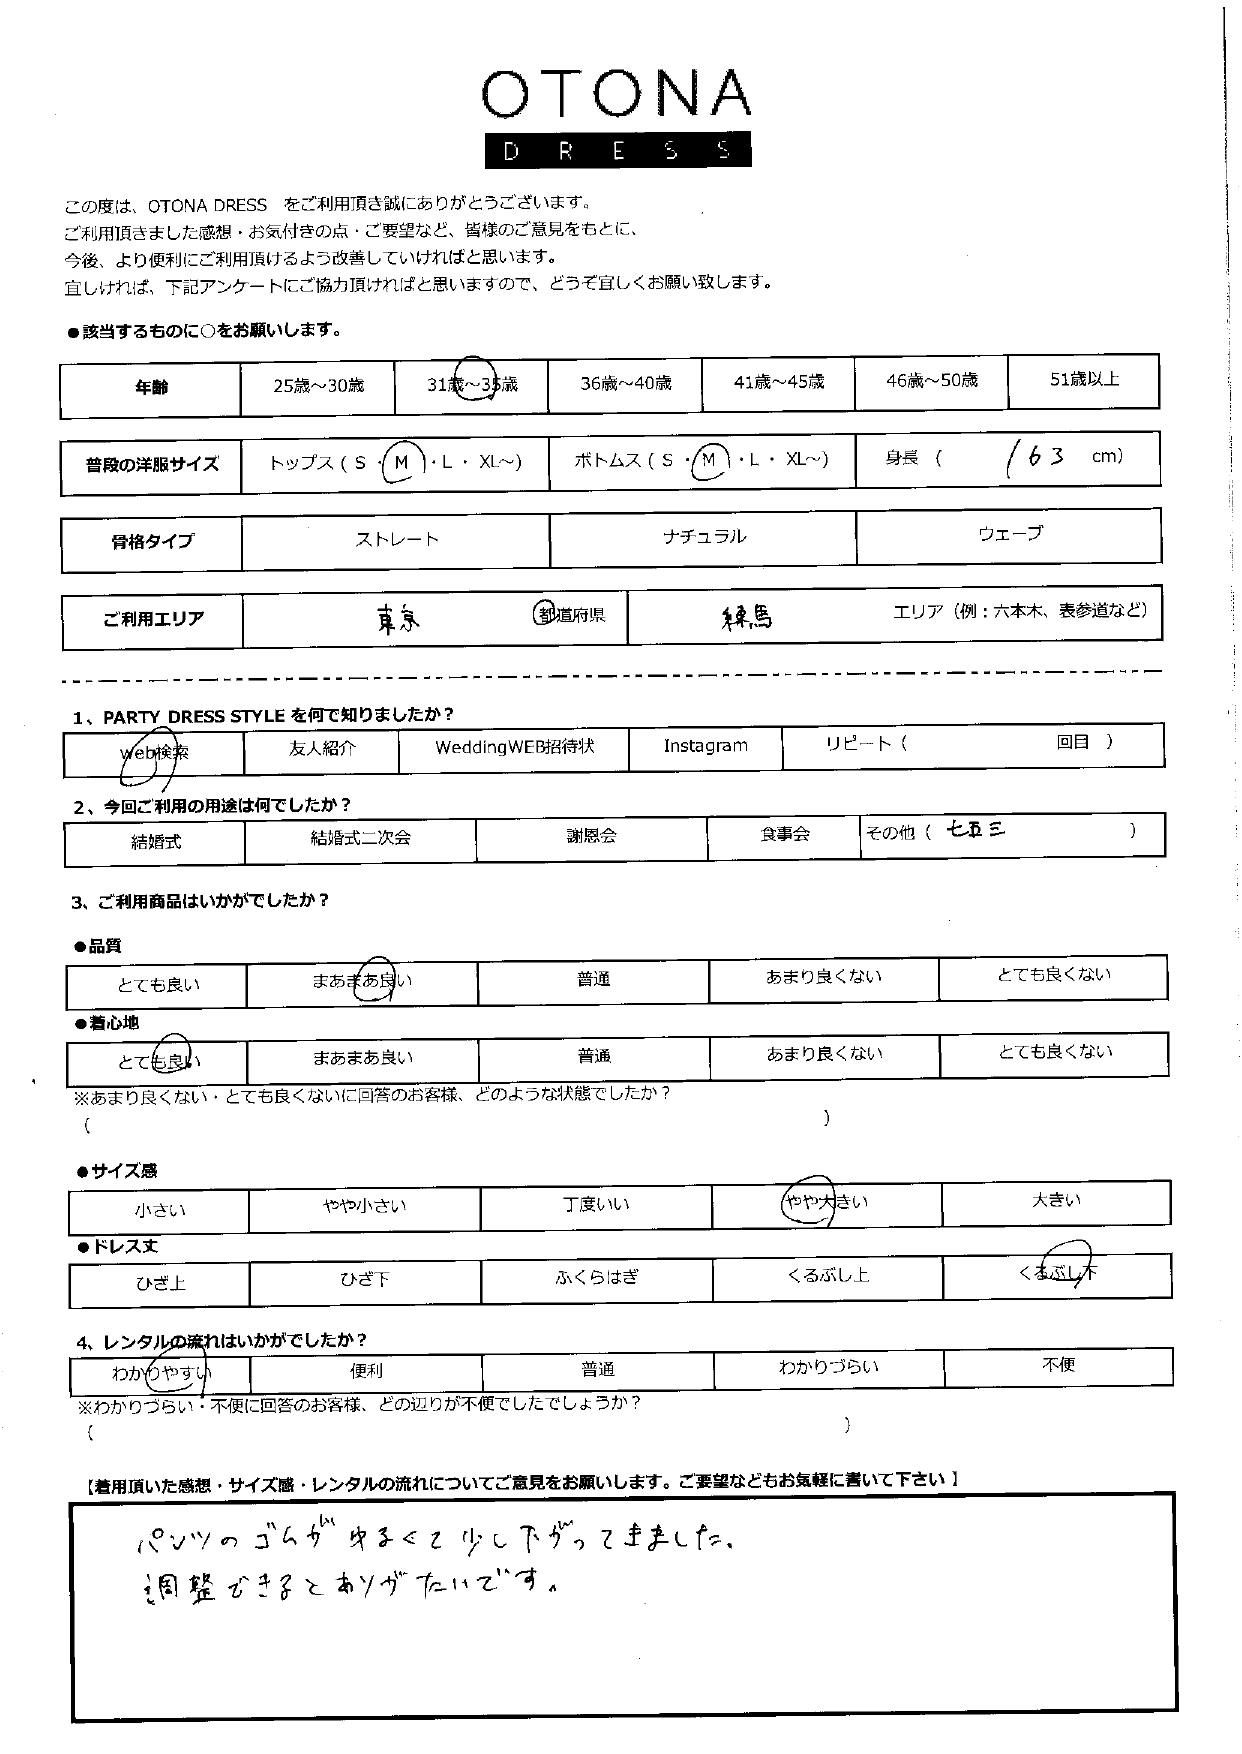 OTONA
DRESS
この度は、OTONA DRESS　をご利用頂き誠にありがとうございます。
ご利用頂きました感想・お気付きの点・ご要望など、皆様のご意見をもとに、
今後、より便利にご利用頂けるよう改善していければと思います。
宜しければ、下記アンケートにご協力頂ければと思いますので、どうぞ宜しくお願い致します。
●該当するものに○をお願いします。
年齢 25歳～30歳 31歳～35歳 36歳～40歳 41歳～45歳 46歳～50歳 51歳以上
普段の洋服サイズ トップス ( S ・ M ・ L ・ XL～) ボトムス ( S ・ M ・ L ・ XL～) 身長 ( 163 cm)
骨格タイプ ストレート ナチュラル ウェーブ
ご利用エリア 東京 都道府県 練馬 エリア（例：六本木、表参道など）
1、PARTY DRESS STYLE を何で知りましたか？
web検索 友人紹介 WeddingWEB招待状 Instagram リピート（ 回目 ）
2、今回ご利用の用途は何でしたか？
結婚式 結婚式二次会 謝恩会 食事会 その他（ 七五三 ）
3、ご利用商品はいかがでしたか？
●品質
とても良い まあまあ良い 普通 あまり良くない とても良くない
●着心地
とても良い まあまあ良い 普通 あまり良くない とても良くない
※あまり良くない・とても良くないに回答のお客様、どのような状態でしたか？
( )
●サイズ感
小さい やや小さい 丁度いい やや大きい 大きい
●ドレス丈
ひざ上 ひざ下 ふくらはぎ くるぶし上 くるぶし下
4、レンタルの流れはいかがでしたか？
わかりやすい 便利 普通 わかりづらい 不便
※わかりづらい・不便に回答のお客様、どの辺りが不便でしたでしょうか？
( )
【着用頂いた感想・サイズ感・レンタルの流れについてご意見をお願いします。ご要望などもお気軽に書いて下さい】
パンツのゴムがゆるくて少し下がってきました。
調整できるとありがたいです。